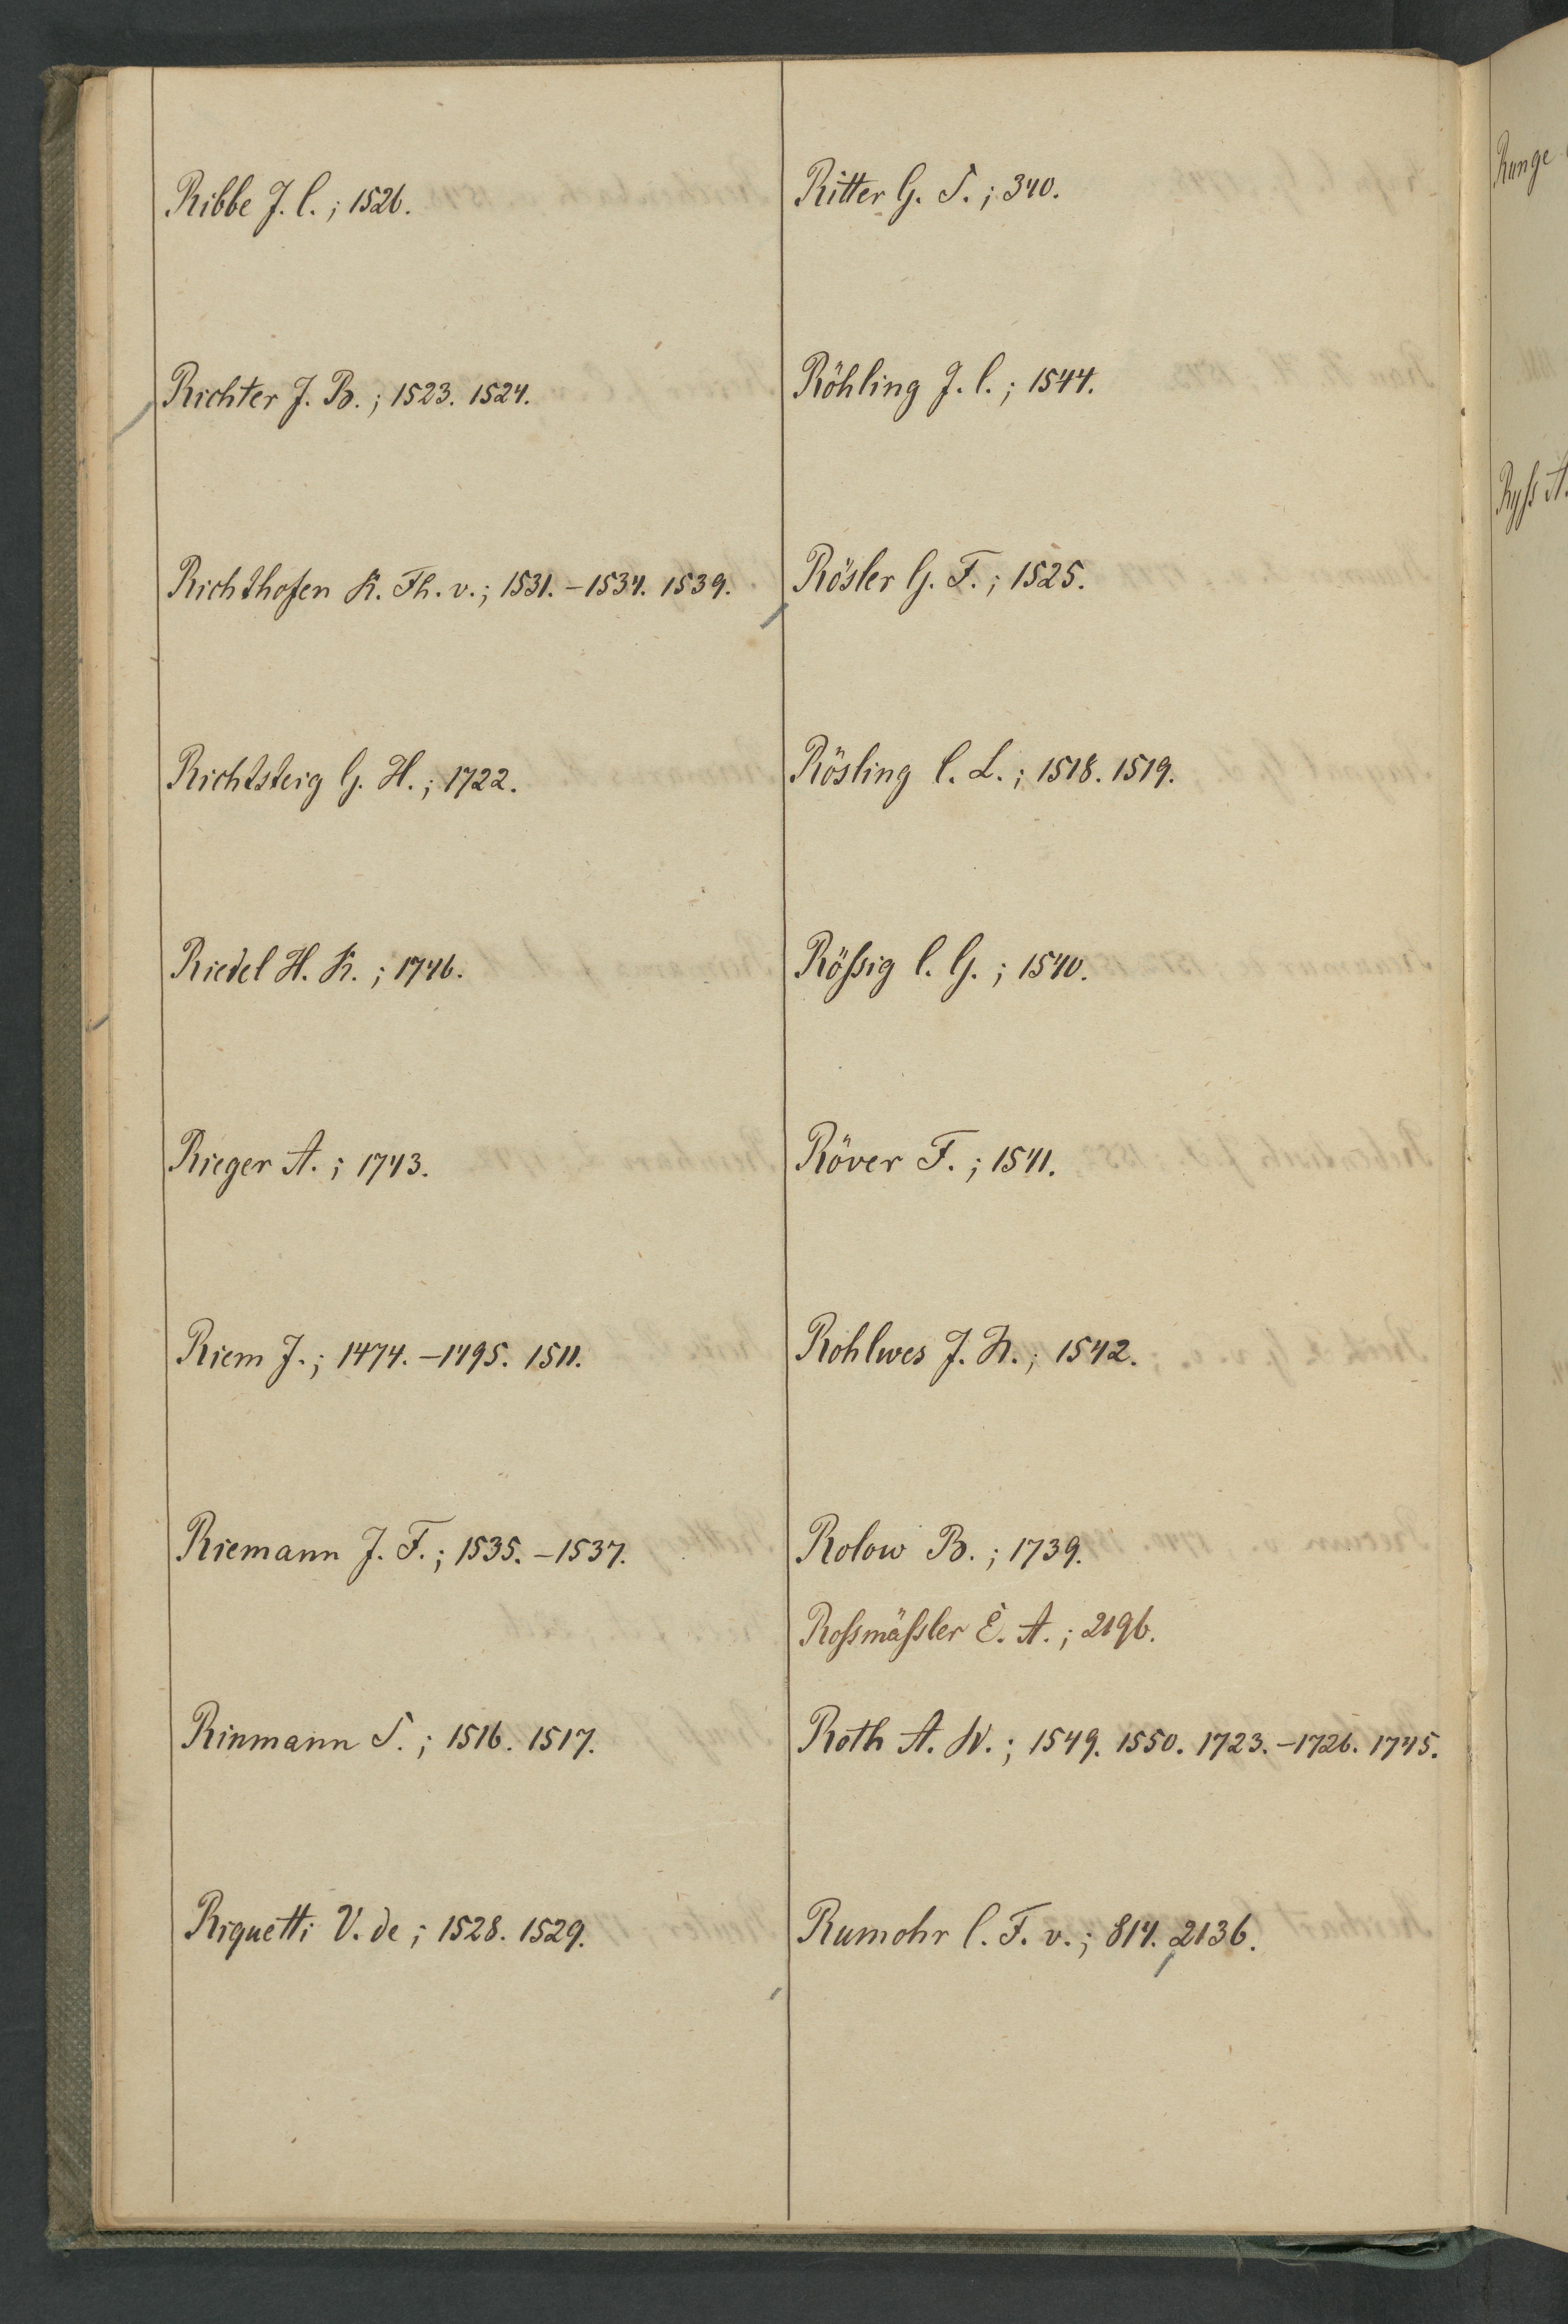 Ribbe J. C.; 1526.
Richter J. B.; 1523. 1524.
Richthofen K. Th. v.; 1531.–1534. 1539.
Richtsteig G. H.; 1722.
Riedel H. K.; 1746.
Rieger A.; 1743.
Riem J.; 1474.–1495. 1511.
Riemann J. F.; 1535.–1537.
Rinmann S.; 1516. 1517.
Riquetti V. de; 1528. 1529.
Ritter G. S.; 340.
Röhling J. C.; 1544.
Rösler G. F.; 1525.
Rösling C. L.; 1518. 1519.
Röſsig C. G.; 1540.
Röver F.; 1541.
Rohlwes J. N.; 1542.
Rolow B.; 1739.
Roſsmäſsler E. A.; 2196.
Roth A. W.; 1549. 1550. 1723.–1726. 1745.
Rumohr C. F. v.; 814. 2136.
Runge
Ryſs A.